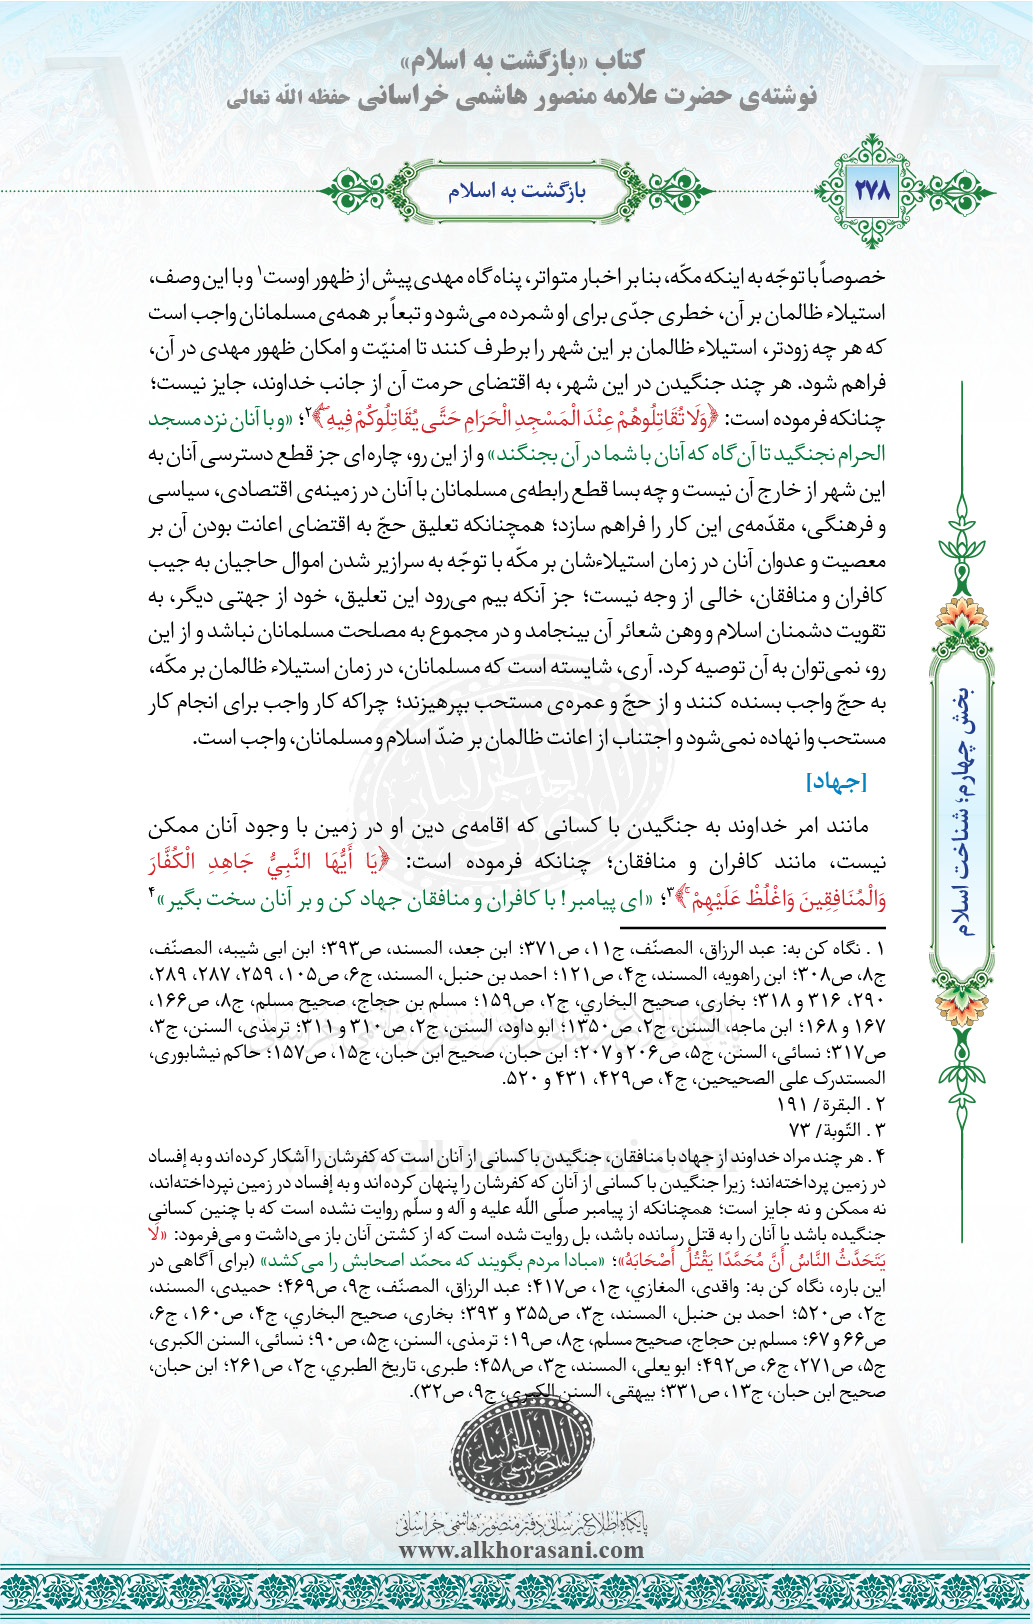 کتاب «بازگشت به اسلام»
نوشته‌ی حضرت علامه منصور هاشمی خراسانی حفظه الله تعالی
۲۷۸
بازگشت به اسلام
خصوصاً با توجّه به اینکه مکّه، بنا بر اخبار متواتر، پناه‌گاه مهدی پیش از ظهور اوست۱ و با این وصف،
استیلاء ظالمان بر آن، خطری جدّی برای او شمرده می‌شود و تبعاً بر همه‌ی مسلمانان واجب است
که هر چه زودتر، استیلاء ظالمان بر این شهر را برطرف کنند تا امنیّت و امکان ظهور مهدی در آن،
فراهم شود. هر چند جنگیدن در این شهر، به اقتضای حرمت آن از جانب خداوند، جایز نیست؛
چنانکه فرموده است: ﴿وَلَا تُقَاتِلُوهُمْ عِنْدَ الْمَسْجِدِ الْحَرَامِ حَتَّى يُقَاتِلُوكُمْ فِيهِ ۖ﴾۲؛ «و با آنان نزد مسجد
الحرام نجنگید تا آن‌گاه که آنان با شما در آن بجنگند» و از این رو، چاره‌ای جز قطع دسترسی آنان به
این شهر از خارج آن نیست و چه بسا قطع رابطه‌ی مسلمانان با آنان در زمینه‌ی اقتصادی، سیاسی
و فرهنگی، مقدّمه‌ی این کار را فراهم سازد؛ همچنانکه تعلیق حجّ به اقتضای اعانت بودن آن بر
معصیت و عدوان آنان در زمان استیلاءشان بر مکّه با توجّه به سرازیر شدن اموال حاجیان به جیب
کافران و منافقان، خالی از وجه نیست؛ جز آنکه بیم می‌رود این تعلیق، خود از جهتی دیگر، به
تقویت دشمنان اسلام و وهن شعائر آن بینجامد و در مجموع به مصلحت مسلمانان نباشد و از این
رو، نمی‌توان به آن توصیه کرد. آری، شایسته است که مسلمانان، در زمان استیلاء ظالمان بر مکّه،
به حجّ واجب بسنده کنند و از حجّ و عمره‌ی مستحب بپرهیزند؛ چراکه کار واجب برای انجام کار
مستحب وا نهاده نمی‌شود و اجتناب از اعانت ظالمان بر ضدّ اسلام و مسلمانان، واجب است.
[جهاد]
مانند امر خداوند به جنگیدن با کسانی که اقامه‌ی دین او در زمین با وجود آنان ممکن
نیست، مانند کافران و منافقان؛ چنانکه فرموده است: ﴿يَا أَيُّهَا النَّبِيُّ جَاهِدِ الْكُفَّارَ
وَالْمُنَافِقِينَ وَاغْلُظْ عَلَيْهِمْ ۚ﴾۳؛ «ای پیامبر! با کافران و منافقان جهاد کن و بر آنان سخت بگیر»۴
۱ . نگاه کن به: عبد الرزاق، المصنّف، ج۱۱، ص۳۷۱؛ ابن جعد، المسند، ص۳۹۳؛ ابن ابی شیبه، المصنّف،
ج۸، ص۳۰۸؛ ابن راهویه، المسند، ج۴، ص۱۲۱؛ احمد بن حنبل، المسند، ج۶، ص۱۰۵، ۲۵۹، ۲۸۷، ۲۸۹،
۲۹۰، ۳۱۶ و ۳۱۸؛ بخاری، صحیح البخاري، ج۲، ص۱۵۹؛ مسلم بن حجاج، صحیح مسلم، ج۸، ص۱۶۶،
۱۶۷ و ۱۶۸؛ ابن ماجه، السنن، ج۲، ص۱۳۵۰؛ ابو داود، السنن، ج۲، ص۳۱۰ و ۳۱۱؛ ترمذی، السنن، ج۳،
ص۳۱۷؛ نسائی، السنن، ج۵، ص۲۰۶ و ۲۰۷؛ ابن حبان، صحیح ابن حبان، ج۱۵، ص۱۵۷؛ حاکم نیشابوری،
المستدرک علی الصحیحین، ج۴، ص۴۲۹، ۴۳۱ و ۵۲۰.
۲ . البقرة/ ۱۹۱
۳ . التّوبة/ ۷۳
۴ . هر چند مراد خداوند از جهاد با منافقان، جنگیدن با کسانی از آنان است که کفرشان را آشکار کرده‌اند و به إفساد
در زمین پرداخته‌اند؛ زیرا جنگیدن با کسانی از آنان که کفرشان را پنهان کرده‌اند و به إفساد در زمین نپرداخته‌اند،
نه ممکن و نه جایز است؛ همچنانکه از پیامبر صلّی الله علیه و آله و سلّم روایت نشده است که با چنین کسانی
جنگیده باشد یا آنان را به قتل رسانده باشد، بل روایت شده است که از کشتن آنان باز می‌داشت و می‌فرمود: «لَا
يَتَحَدَّثُ النَّاسُ أَنَّ مُحَمَّدًا يَقْتُلُ أَصْحَابَهُ»؛ «مبادا مردم بگویند که محمّد اصحابش را می‌کشد» (برای آگاهی در
این باره، نگاه کن به: واقدی، المغازي، ج۱، ص۴۱۷؛ عبد الرزاق، المصنّف، ج۹، ص۴۶۹؛ حمیدی، المسند،
ج۲، ص۵۲۰؛ احمد بن حنبل، المسند، ج۳، ص۳۵۵ و ۳۹۳؛ بخاری، صحیح البخاري، ج۴، ص۱۶۰، ج۶،
ص۶۶ و ۶۷؛ مسلم بن حجاج، صحیح مسلم، ج۸، ص۱۹؛ ترمذی، السنن، ج۵، ص۹۰؛ نسائی، السنن الکبری،
ج۵، ص۲۷۱، ج۶، ص۴۹۲؛ ابو یعلی، المسند، ج۳، ص۴۵۸؛ طبری، تاریخ الطبري، ج۲، ص۲۶۱؛ ابن حبان،
صحیح ابن حبان، ج۱۳، ص۳۳۱؛ بیهقی، السنن الکبری، ج۹، ص۳۲).
بخش چهارم؛ شناخت اسلام
پایگاه اطلاع‌رسانی دفتر منصور هاشمی خراسانی
www.alkhorasani.com